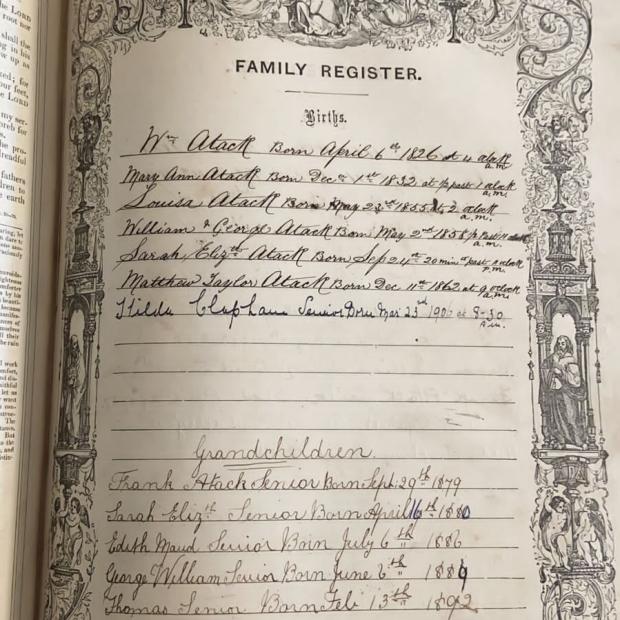 the LORD
root nor
shall the
ing in his
ow up as
ked; for
our feet,
e LORD
my ser-
oreb for
s.
the pro-
dreadful
fathers
dren to
e earth
FAMILY REGISTER.
Births.
Wm Atack Born April 6th 1826 at 4 oclock a.m.
Mary Ann Atack Born Decr 1st 1832 at ½ past 1 oclock a.m.
Louisa Atack Born May 23rd 1855 at 2 oclock a.m.
William & George Atack Born May 2nd 1858 ½ Past 11 oclock a.m.
Sarah Elizth Atack Born Sep 24th 20 min past oclock p.m.
Matthew Taylor Atack Born Dec 11th 1862 at 9 oclock a.m.
Hilda Clapham Senior Born Mar 23rd 190 at 8-30 a.m.
Grandchildren.
Frank Atack Senior Born Sept. 29th 1879
Sarah Elizth Senior Born April 16th 1880
Edith Maud Senior Born July 6th 1886
George William Senior Born June 6th 1889
Thomas Senior Born Feb 13th 1892